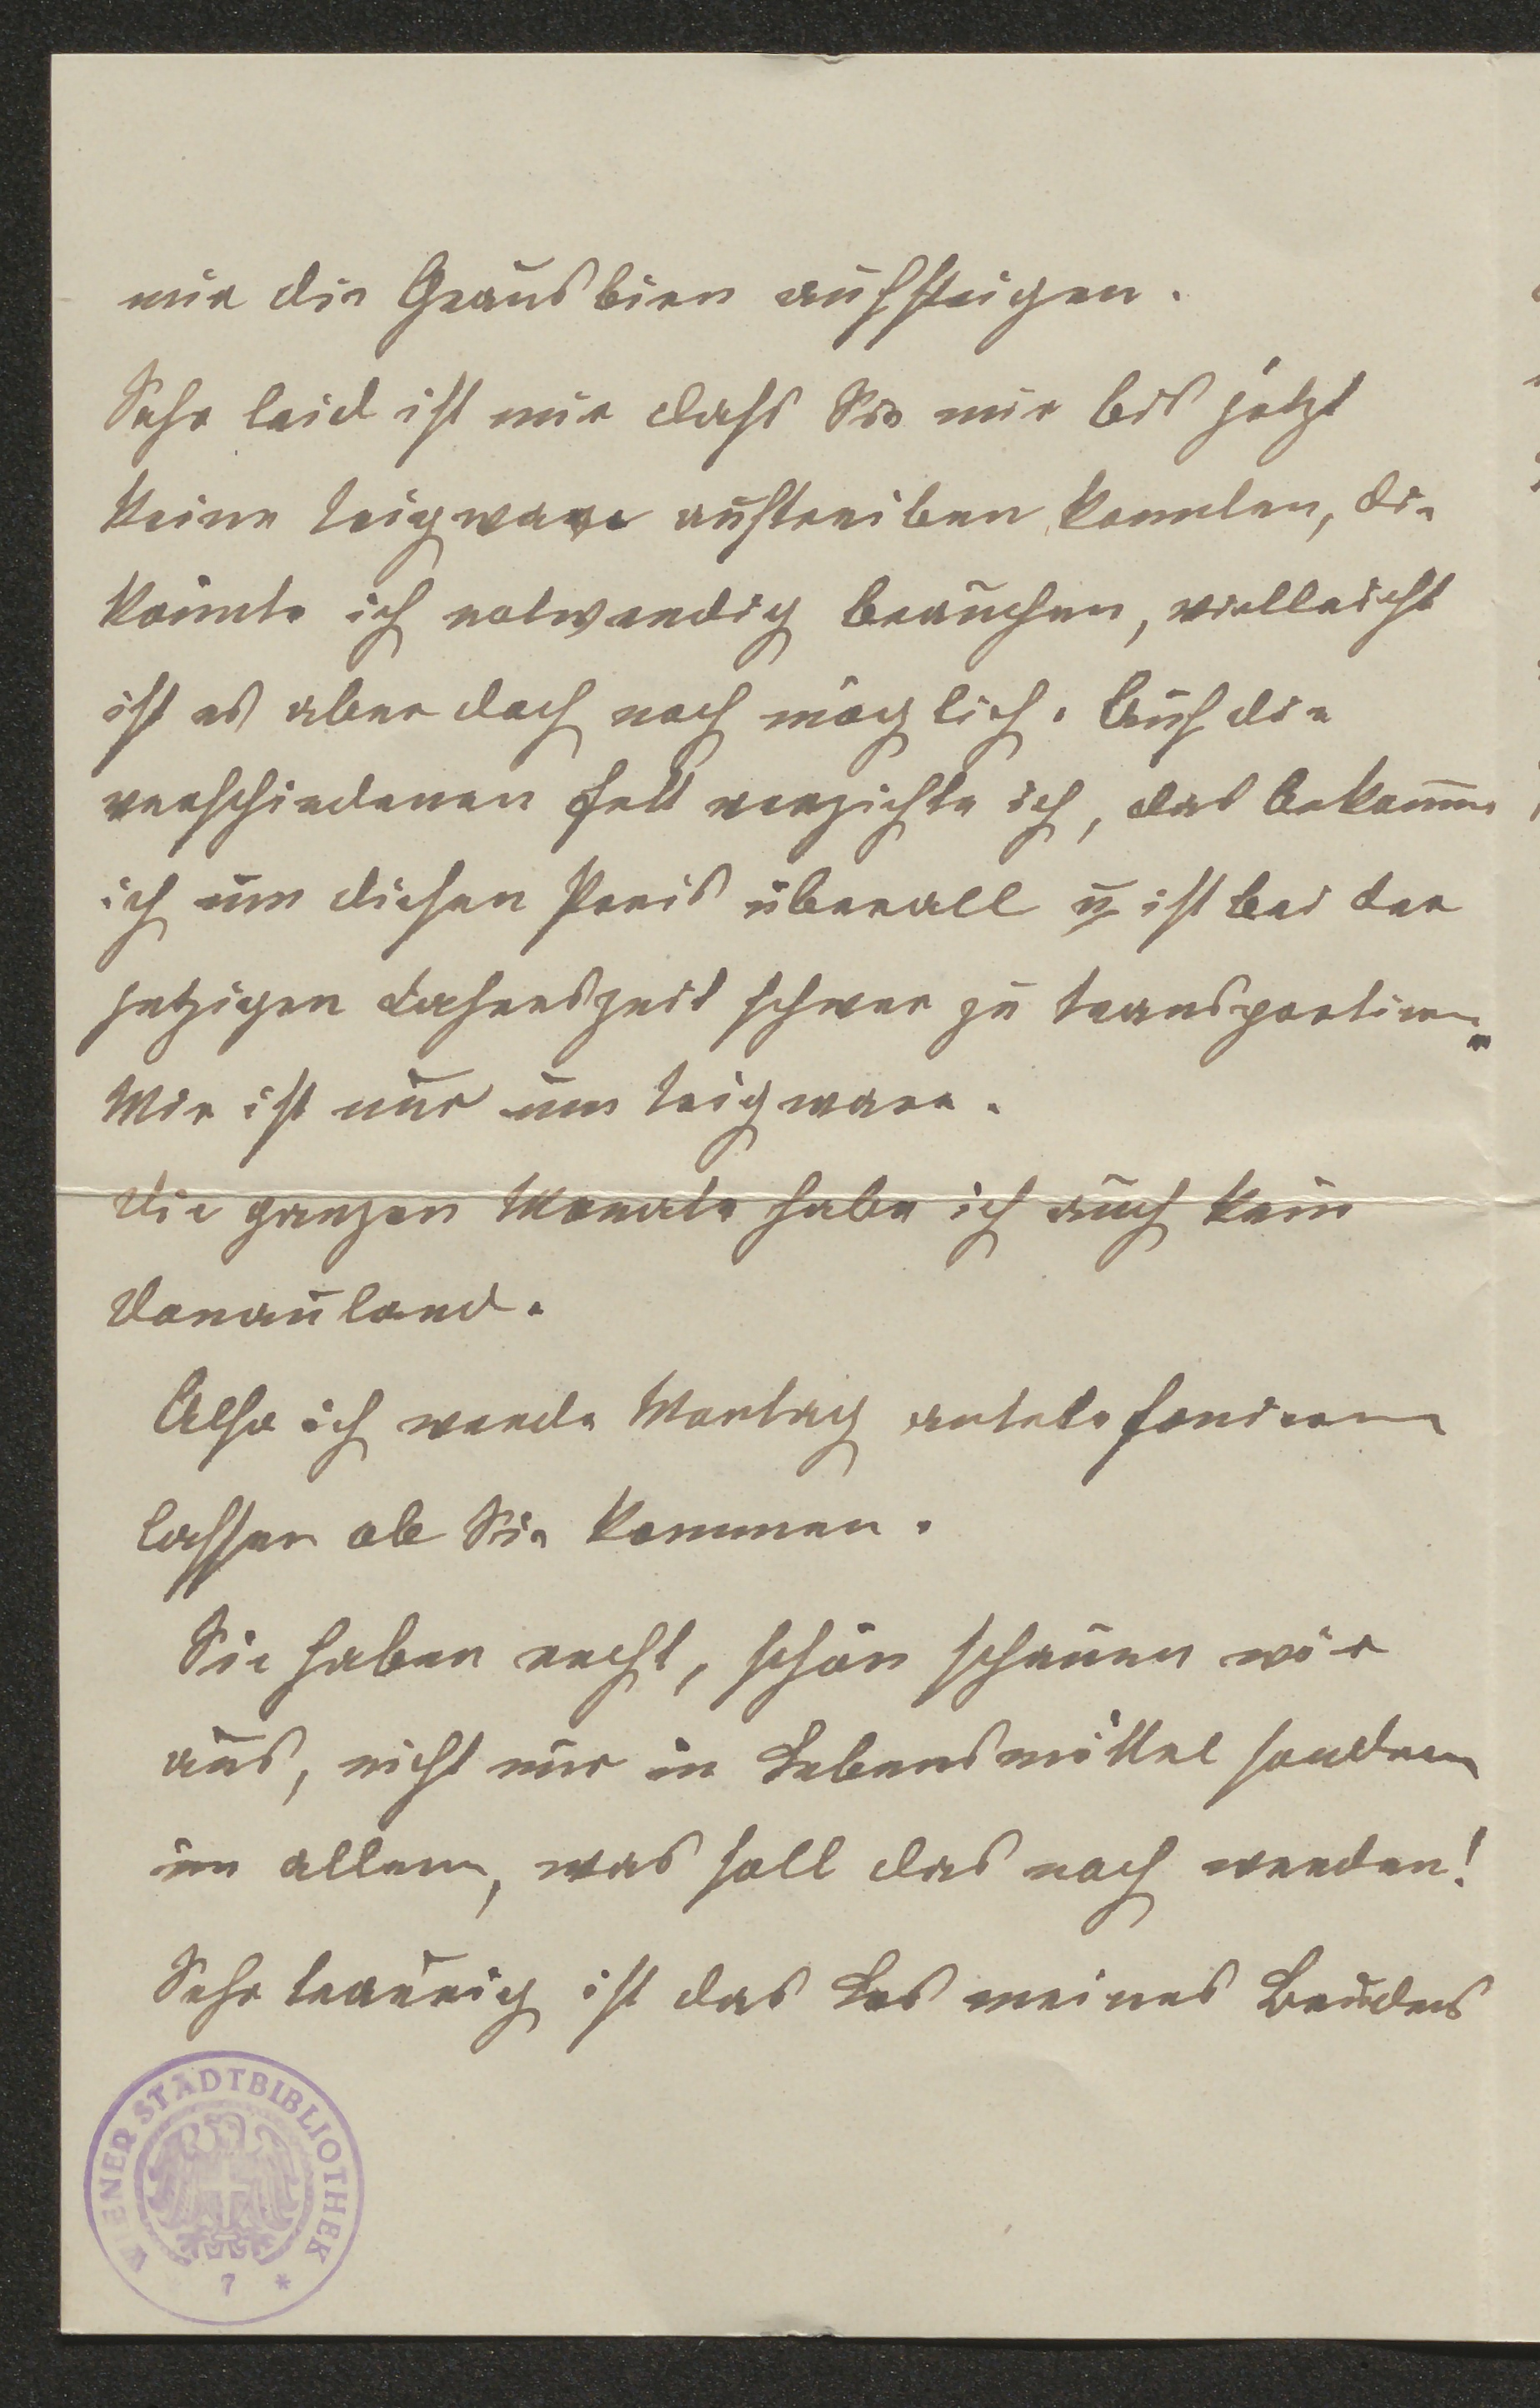 mir die Grausbirn aufsteigen.
Sehr leid ist mir dass Sie mir bis jetzt
keine teigware auftreiben konnten, die
könnte ich notwendig brauchen, vielleicht
ist es aber doch noch möglich. Auf die
verschiedenen fett verzichte ich, das bekomme
ich um diesen Preis überall u ist bei der
jetzigen Jahreszeit schwer zu transportieren
Mir ist nur um teigware.
Die ganzen Monate habe ich auch kein
Donauland.
Also ich werde Montag antelefonieren
lassen ob Sie kommen.
Sie haben recht, schön schauen wir
aus, nicht nur in Lebensmittel sondern
in allem, was soll das noch werden!
Sehr traurig ist das Los meines Bruders
WIENER STADTBIBLIOTHEK
7 *